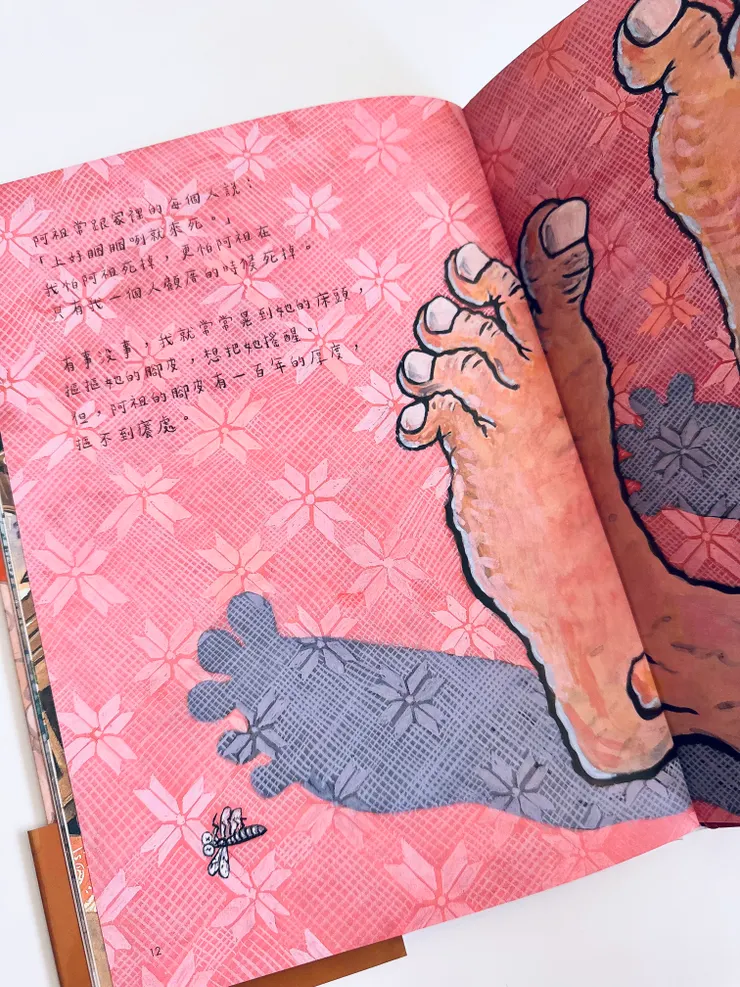 阿祖常跟家裡的每個人說：
「上好睏睏咧就來死。」
我怕阿祖死掉，更怕阿祖在
只有我一個人顧厝的時候死掉。
有事沒事，我就常常晃到她的床頭，
摳摳她的腳皮，想把她搖醒。
但，阿祖的腳皮有一百年的厚度，
摳不到癢處。
12